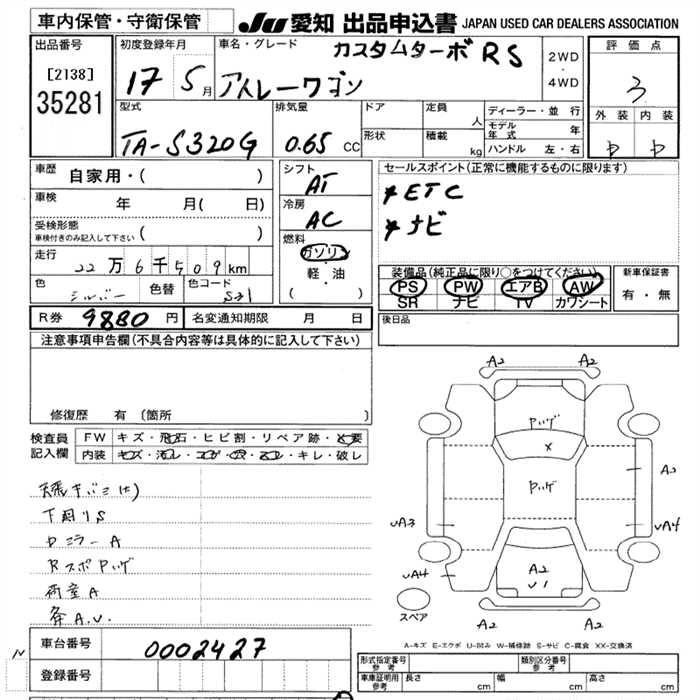 車内保管・守衛保管
JU 愛知 出品申込書 JAPAN USED CAR DEALERS ASSOCIATION
出品番号 初度登録年月 車名・グレード カスタムターボ RS 2WD ・ 4WD 評価点
[2138] 17 5月 アトレーワゴン 3
35281
型式 排気量 ドア 定員 人 ディーラー・並行 外装 内装
モデル年式 年
TA-S320G 0.65 CC 形状 積載 kg ハンドル 左・右
車歴 自家用・( ) シフト AT セールスポイント(正常に機能するものに限ります)
車検 年 月( 日) 冷房 AC ETC
受検形態 ナビ
車検付きのみ記入して下さい ( ) 燃料 ガソリン
走行 22万6千509km 軽・油 装備品(純正品に限り○をつけてください) 新車保証書
色 シルバー 色替 色コード S31 ( ) PS PW エアB AW 有・無
SR ナビ TV カワシート
R券 9880円 名変通知期限 月 日 後日品
注意事項申告欄(不具合内容等は具体的に記入して下さい)
修復歴 有 (箇所 )
検査員 FW キズ・飛石・ヒビ割・リペア跡・交要
記入欄 内装 キズ・汚れ・コゲ・穴・ヌレ・キレ・破レ
下廻りS
ミラーA
A.U.
A2 A2
A2
UA3 UA4
UA4 A2
U1
A2 A2
スペア
A-キズ E-エクボ U-凹み W-補修跡 S-サビ C-腐食 XX-交換済
車台番号 0002427
登録番号
形式指定番号 参考 類別区分番号 参考
車庫証明用 参考 長さ cm 幅 cm 高さ cm